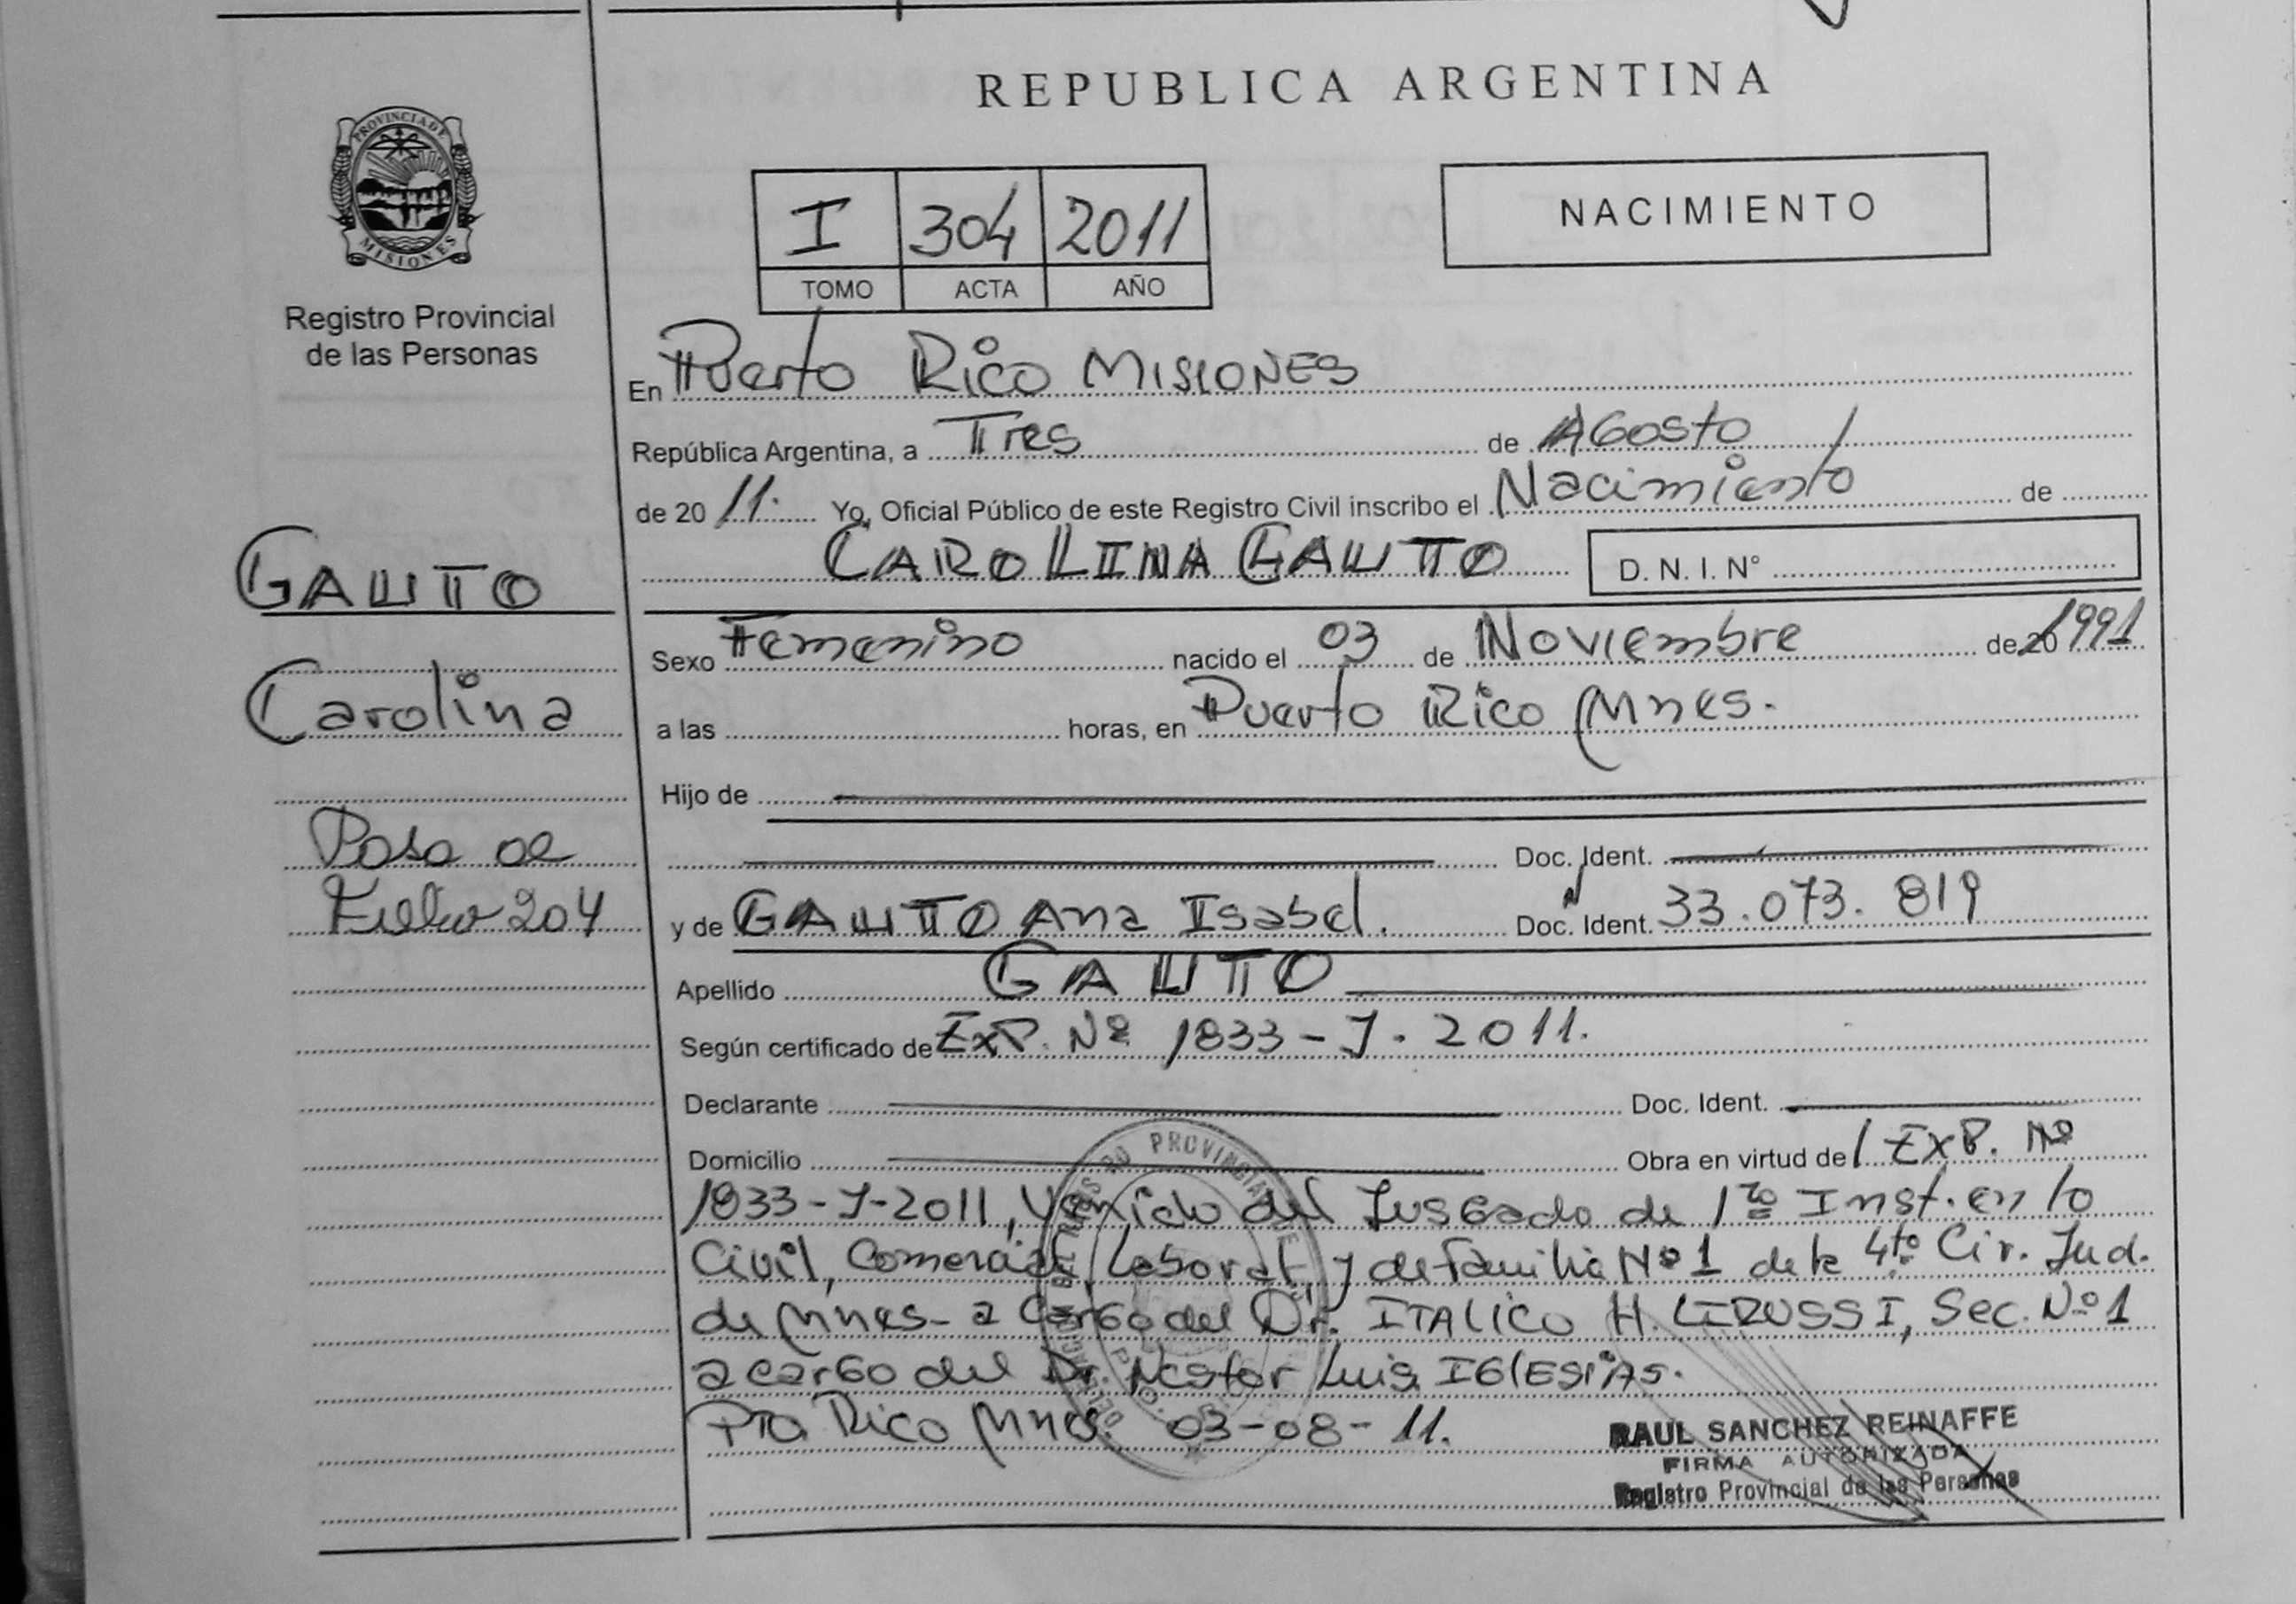 REPUBLICA ARGENTINA
PROVINCIA DE
MISIONES
Registro Provincial
de las Personas
I 304 2011
TOMO ACTA AÑO
NACIMIENTO
En Puerto Rico MISIONES
República Argentina, a Tres de AGosto
de 20 11. Yo, Oficial Público de este Registro Civil inscribo el Nacimiento de
CAROLINA GAUTO D. N. I. N°
GAUTO
Carolina
Sexo Femenino nacido el 03 de Noviembre de 20 1991
a las horas, en Puerto Rico Mnes.
Hijo de
Doc. Ident.
Pasa al
Folio 204
y de GAUTO Ana Isabel. Doc. Ident. 33.073.819
Apellido GAUTO
Según certificado de EXP. Nº 1833-J-2011.
Declarante Doc. Ident.
Domicilio Obra en virtud de EXP. Nº
1833-J-2011, Venido del Jusgado de 1ro Inst. en lo
Civil, Comercial, Laboral, y de familia Nº 1 de la 4to Cir. Jud.
de Mnes- a Cargo del Dr. ITALICO H. LIRUSSI, Sec. Nº 1
a cargo del Dr. Nestor Luis IGLESIAS.
Pto. Rico Mnes. 03-08-11.
RAUL SANCHEZ REINAFFE
FIRMA AUTORIZADA
Registro Provincial de las Personas